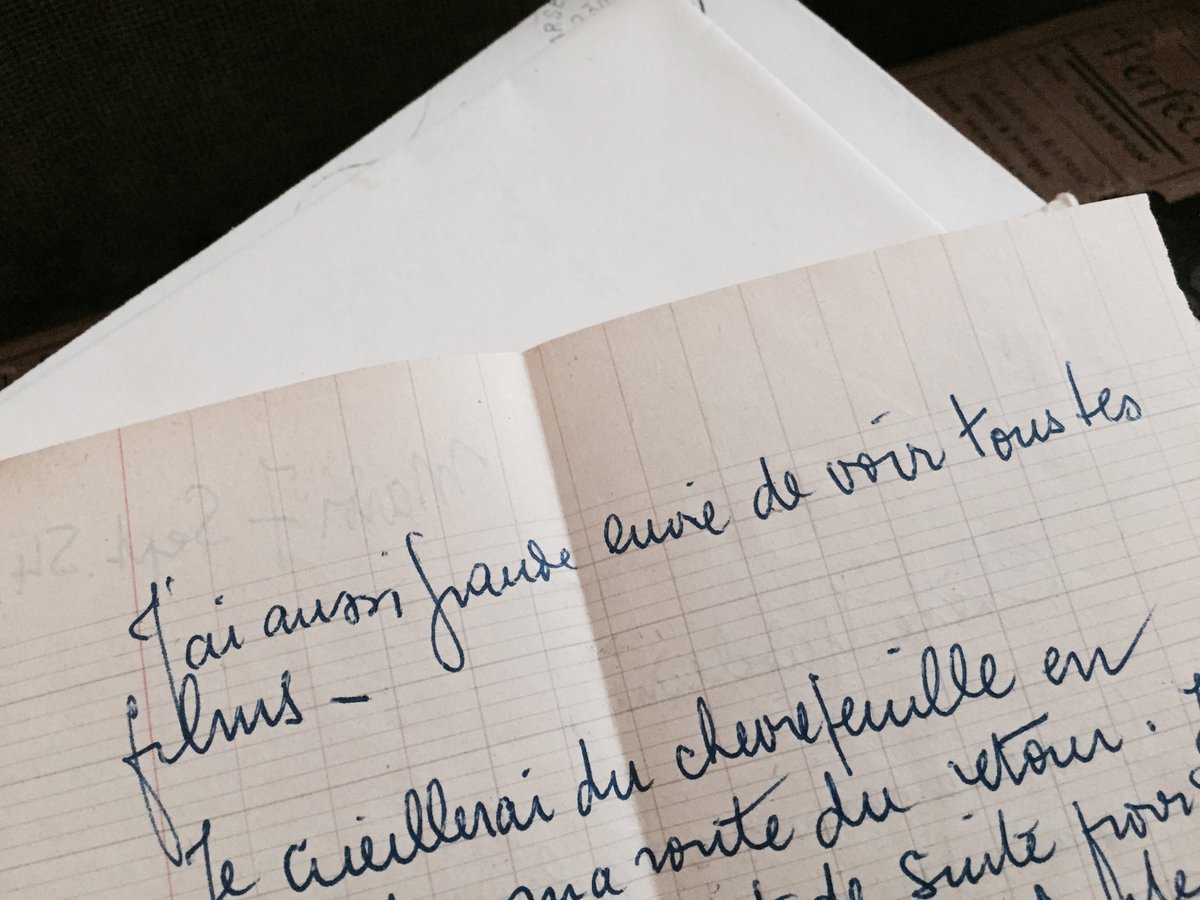 "Perfec
J'ai aussi grande envie de voir tous tes
films —
Je cueillerai du chevrefeuille en
ma route du retour.
de suite